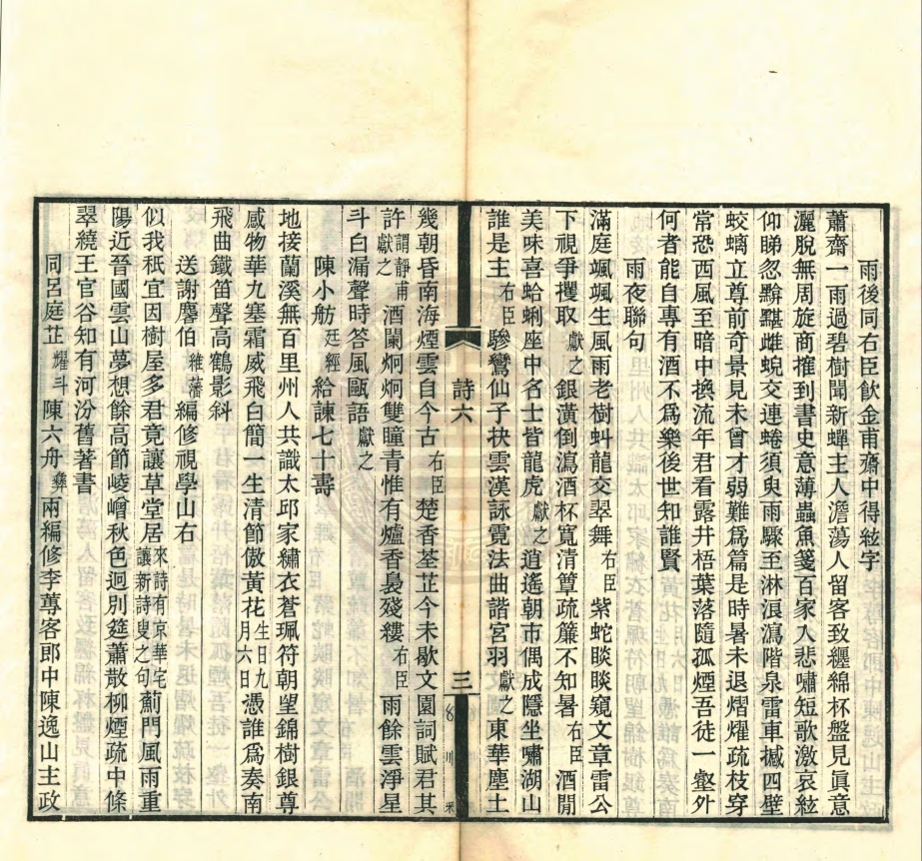 雨後同右臣飮金甫齋中得絃字
蕭齋一雨過碧樹聞新蟬主人澹蕩人留客致纒綿杯盤見眞意
灑脫無周旋商搉到書史意薄蟲魚箋百家入悲嘯短歌激哀絃
仰睇忽黭黮雌蜺交連蜷須臾雨驟至淋浪瀉階泉雷車撼四壁
蛟螭立尊前奇景見未曾才弱難爲篇是時暑未退熠燿疏枝穿
常恐西風至暗中換流年君看露井梧葉落隨孤煙吾徒一壑外
何者能自專有酒不爲樂後世知誰賢
雨夜聯句
滿庭颯颯生風雨老樹蚪龍交翠舞右臣紫蛇睒睒窺文章雷公
下視爭攫取獻之銀潢倒瀉酒杯寬清簟疏簾不知暑右臣酒閒
美味喜蛤蜊座中名士皆龍虎獻之逍遙朝市偶成隱坐嘯湖山
誰是主右臣驂鸞仙子抉雲漢詠霓法曲諧宮羽獻之東華塵土
詩六
三
幾朝昏南海煙雲自今古右臣楚香荃芷今未歇文園詞賦君其
許謂靜甫獻之酒闌炯炯雙瞳青惟有爐香裊殘縷右臣雨餘雲淨星
斗白漏聲時答風甌語獻之
陳小舫廷經給諫七十壽
地接蘭溪無百里州人共識太邱家繡衣蒼珮符朝望錦樹銀尊
感物華九塞霜威飛白簡一生清節傲黃花生日九月六日憑誰爲奏南
飛曲鐵笛聲高鶴影斜
送謝麐伯維藩編修視學山右
似我秖宜因樹屋多君竟讓草堂居來詩有京華宅讓新詩叟之句薊門風雨重
陽近晉國雲山夢想餘高節崚嶒秋色迥別筵蕭散柳煙疏中條
翠繞王官谷知有河汾舊著書
同呂庭芷耀斗陳六舟彝兩編修李蓴客郎中陳逸山主政